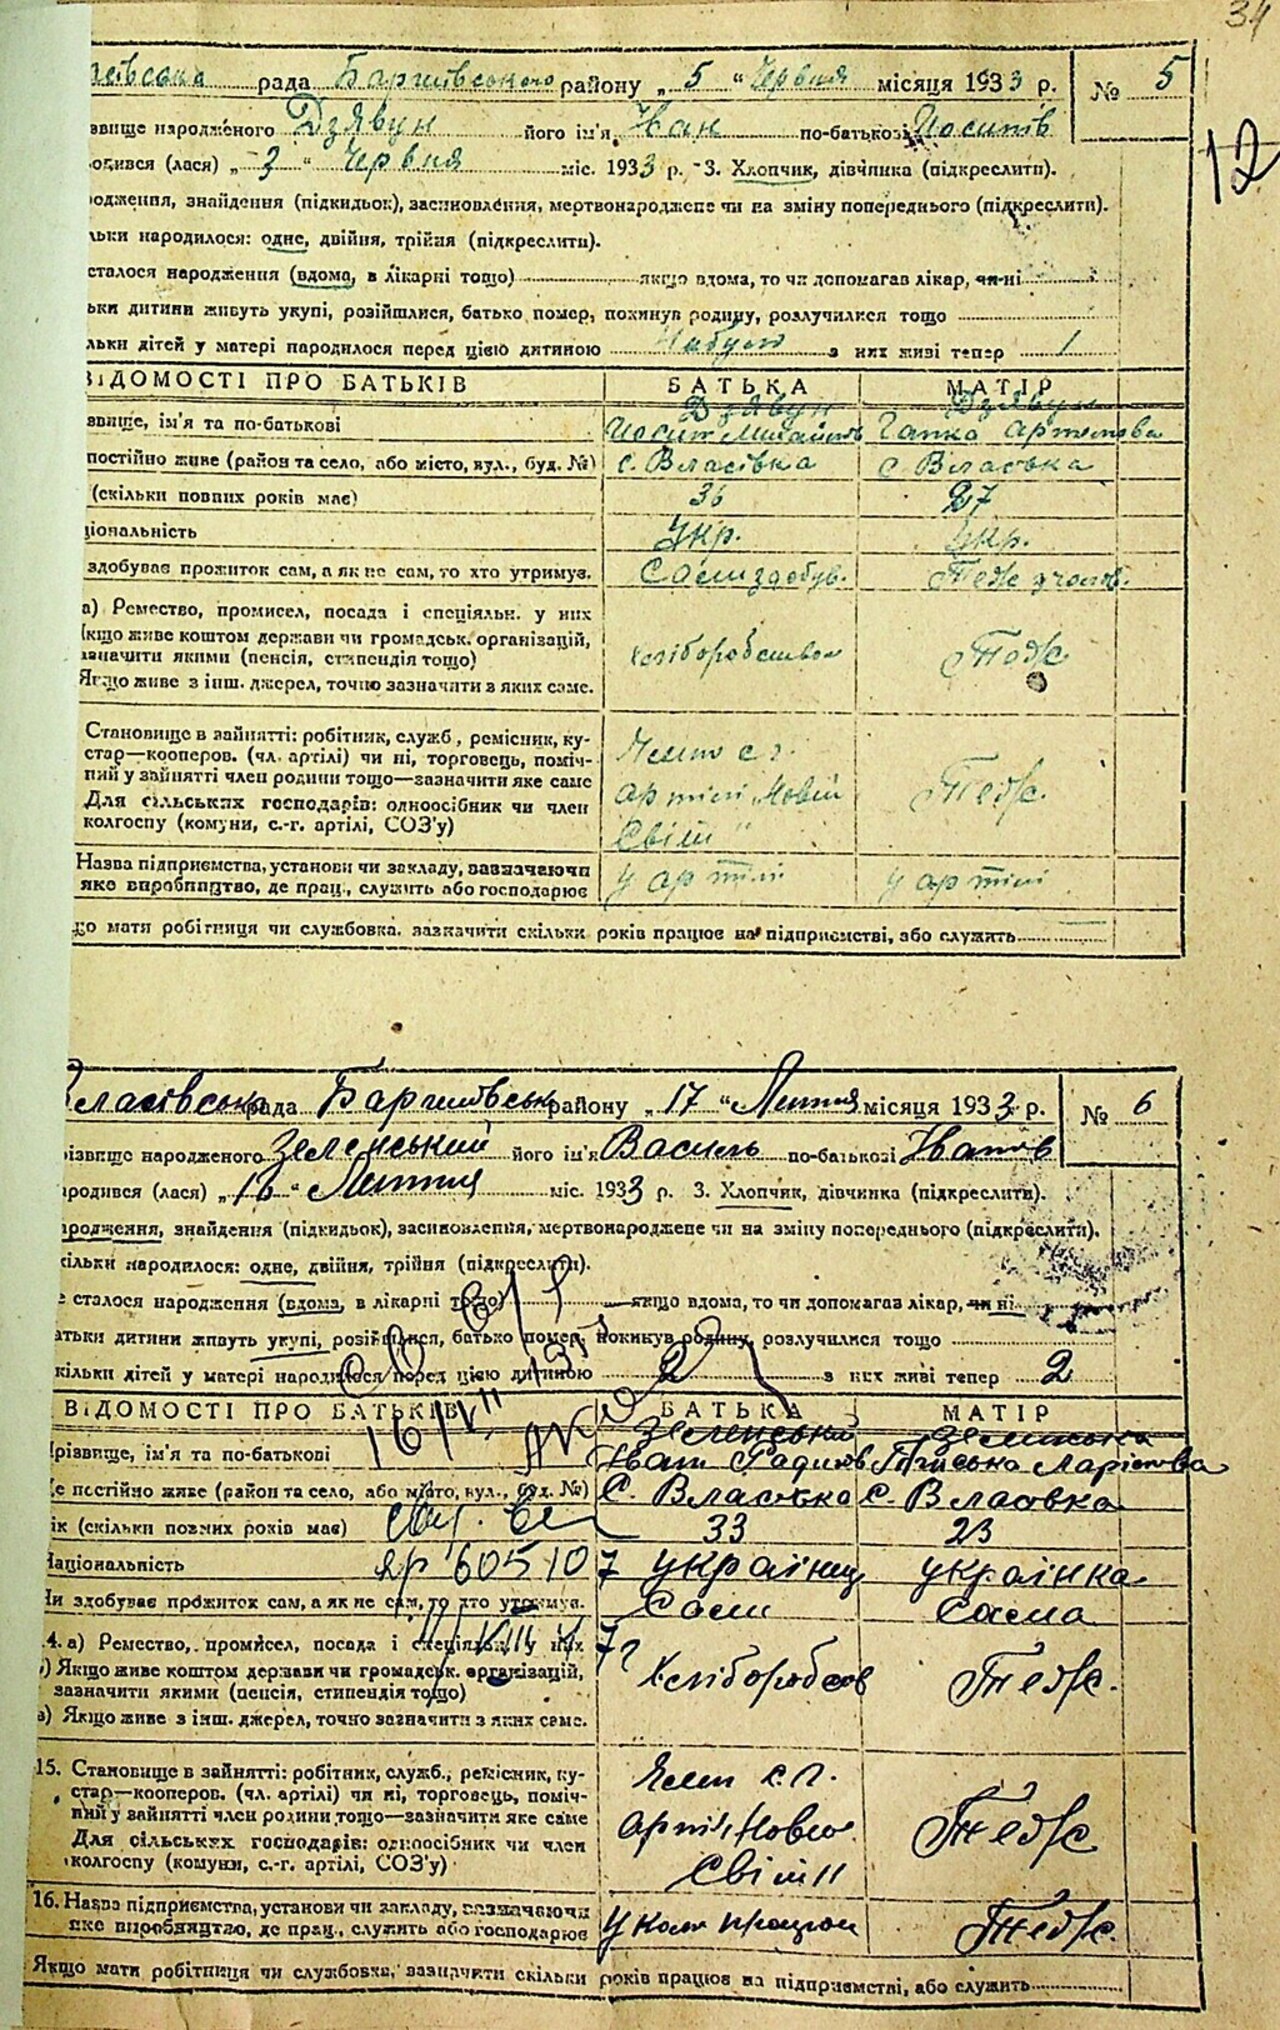 34
рада Баришівського району „ 5 “ Червня місяця 1933 р. № 5
12
звище народженого Дзявун його ім'я Іван по-батькові Йосипів
одився (лася) „ 3 “ Червня міс. 1933 р. 3. Хлопчик, дівчинка (підкреслити).
родження, знайдення (підкидьок), засиновлення, мертвонароджене чи на зміну попереднього (підкреслити).
льки народилося: одне, двійня, трійня (підкреслити).
сталося народження (вдома, в лікарні тощо) якщо вдома, то чи допомагав лікар, чи ні
ьки дитини живуть укупі, розійшлися, батько помер, покинув родину, розлучилися тощо
льки дітей у матері народилося перед цією дитиною з них живі тепер 1
ВІДОМОСТІ ПРО БАТЬКІВ БАТЬКА МАТІР
Дзявун Дзявун
звище, ім'я та по-батькові Йосип Михайлов Гапка Артемова
постійно живе (район та село, або місто, вул., буд. №) с. Власівка с. Власовка
(скільки повних років має) 36 27
ціональність Укр. Укр.
здобуває прожиток сам, а як не сам, то хто утримує. Теж
а) Ремество, промисел, посада і спеціяльн. у них
кщо живе коштом держави чи громадськ. організацій,
зазначити якими (пенсія, стипендія тощо) хліборобство Тодж
Якщо живе з інш. джерел, точно зазначити з яких саме.
Становище в зайнятті: робітник, служб., ремісник, ку-
стар—кооперов. (чл. артілі) чи ні, торговець, поміч-
ний у зайнятті член родини тощо—зазначити яке саме
Член с. г.
артілі „Новий Тедж.
Світ“
Для сільських господарів: одноосібник чи член
колгоспу (комуни, с.-г. артілі, СОЗ'у)
Назва підприємства, установи чи закладу, зазначаючи
яке виробництво, де прац., служить або господарює у артілі у артілі
що мати робітниця чи службовка, зазначити скільки років працює на підприємстві, або служить
Власівська рада Баришівськ району „ 17 “ Лютня місяця 1933 р. № 6
різвище народженого Зеленський його ім'я Василь по-батькові Іванов
ародився (лася) „ 16 “ Лютня міс. 1933 р. 3. Хлопчик, дівчинка (підкреслити).
ародження, знайдення (підкидьок), засиновлення, мертвонароджене чи на зміну попереднього (підкреслити).
кільки народилося: одне, двійня, трійня (підкреслити).
е сталося народження (вдома, в лікарні тощо) якщо вдома, то чи допомагав лікар, чи ні
атьки дитини живуть укупі, розійшлися, батько помер, покинув родину, розлучилися тощо
кільки дітей у матері народилося перед цією дитиною 2 з них живі тепер 2
ВІДОМОСТІ ПРО БАТЬКІВ БАТЬКА МАТІР
Зеленський Зеленська
Прізвище, ім'я та по-батькові Іван
Де постійно живе (район та село, або місто, вул., буд. №) с. Власовка с. Власовка
Вік (скільки повних років має) 33 23
Національність 605107 українец українка
Чи здобуває прожиток сам, а як не сам, то хто утримує. Сам Сама
14. а) Ремество, промисел, посада і спеціяльн. у них
б) Якщо живе коштом держави чи громадськ. організацій,
зазначити якими (пенсія, стипендія тощо) Тедж.
в) Якщо живе з інш. джерел, точно зазначити з яких саме.
15. Становище в зайнятті: робітник, служб., ремісник, ку-
стар—кооперов. (чл. артілі) чи ні, торговець, поміч-
ний у зайнятті член родини тощо—зазначити яке саме
Член с. г.
Тедж
Світ“
Для сільських господарів: одноосібник чи член
колгоспу (комуни, с.-г. артілі, СОЗ'у)
16. Назва підприємства, установи чи закладу, зазначаючи
яке виробництво, де прац., служить або господарює Тедж.
Якщо мати робітниця чи службовка, зазначити скільки років працює на підприємстві, або служить